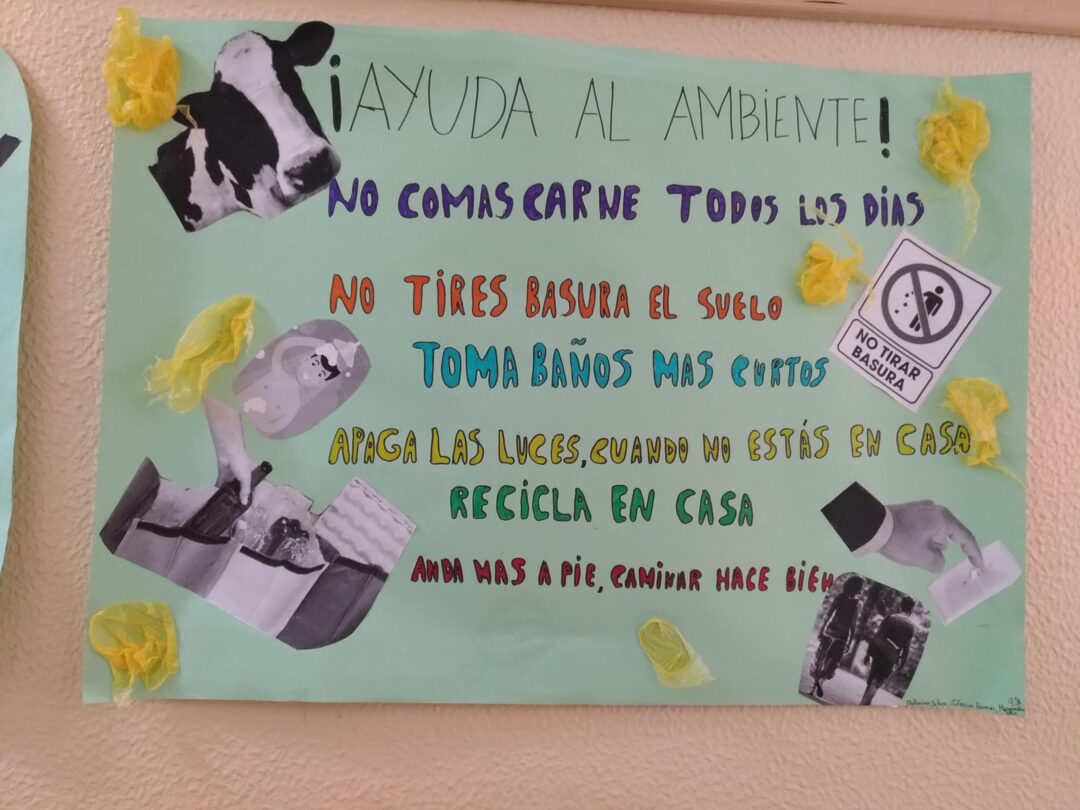 ¡AYUDA AL AMBIENTE!
NO COMAS CARNE TODOS LOS DÍAS
NO TIRES BASURA EL SUELO
NO TIRAR
BASURA
TOMA BAÑOS MAS CURTOS
APAGA LAS LUCES, CUANDO NO ESTÁS EN CASA
RECICLA EN CASA
ANDA MAS A PIE, CAMINAR HACE BIEN